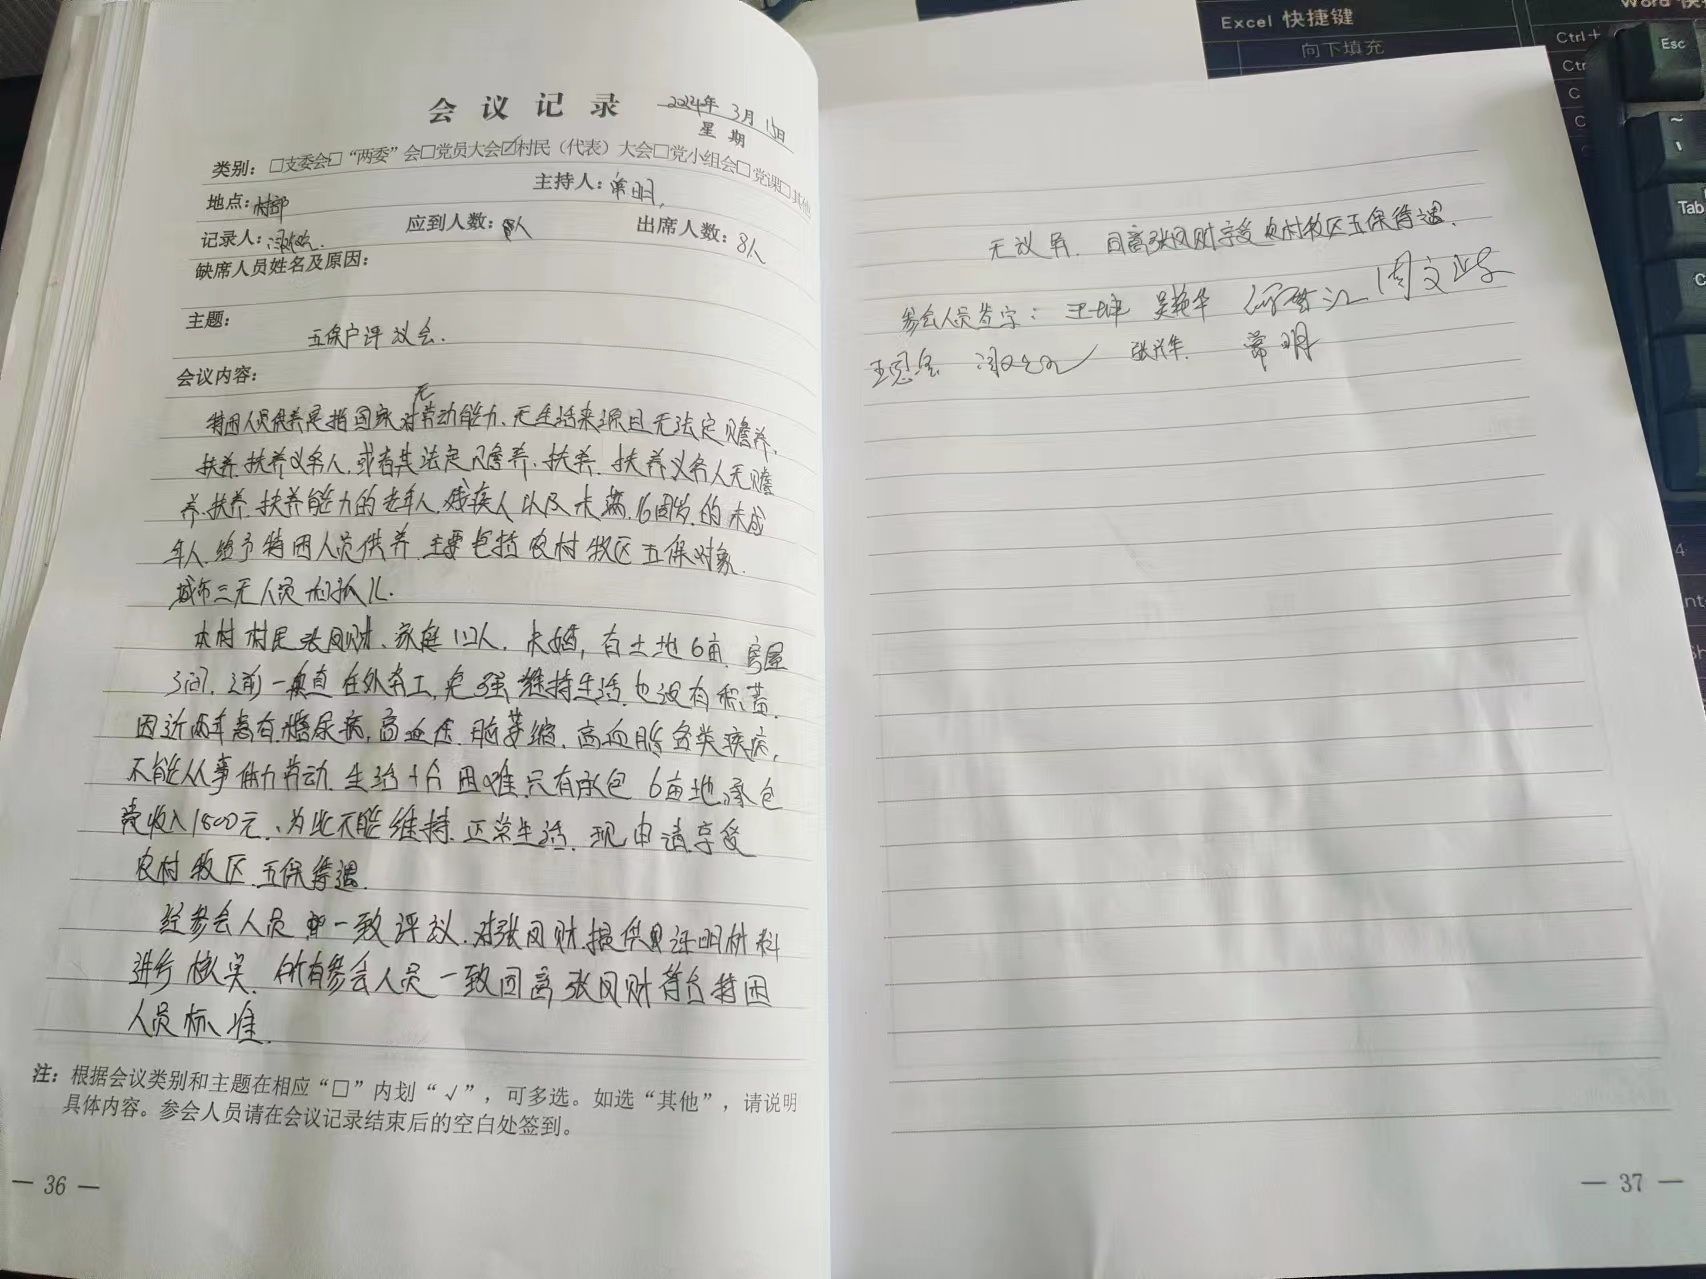 会议记录
2024年3月15日
星期
类别：□支委会□“两委”会□党员大会☑村民（代表）大会□党小组会□党课□其他
地点：村部 主持人：常明
记录人： 应到人数：8人 出席人数：8人
缺席人员姓名及原因：
主题：
五保户评议会.
会议内容：
特困人员供养是指国家对无劳动能力、无生活来源且无法定赡养、
扶养.扶养义务人，或者其法定赡养.扶养.扶养义务人无赡
养.扶养.扶养能力的老年人.残疾人以及未满16周岁的未成
年人.给予特困人员供养.主要包括农村牧区五保对象.
城市三无人员和孤儿.
本村村民张凤财、家庭1口人，未婚，有土地6亩.房屋
3间.之前一直在外务工,勉强维持生活.也没有积蓄.
因近两年患有糖尿病,高血压.脑萎缩.高血脂各类疾病,
不能从事体力劳动.生活十分困难.只有承包6亩地,承包
费收入1800元.为此不能维持.正常生活.现申请享受
农村牧区.五保待遇.
经参会人员一致评议.对张凤财提供的证明材料
进行核实.所有参会人员一致同意张凤财符合特困
人员标准.
注：根据会议类别和主题在相应“□”内划“√”，可多选。如选“其他”，请说明
具体内容。参会人员请在会议记录结束后的空白处签到。
— 36 —
无议异.同意张凤财享受农村牧区五保待遇.
参会人员签字：王坤 吴艳华 周文
张兴华 常明
— 37 —
Excel 快捷键
向下填充
Ctrl+
Esc
Tab